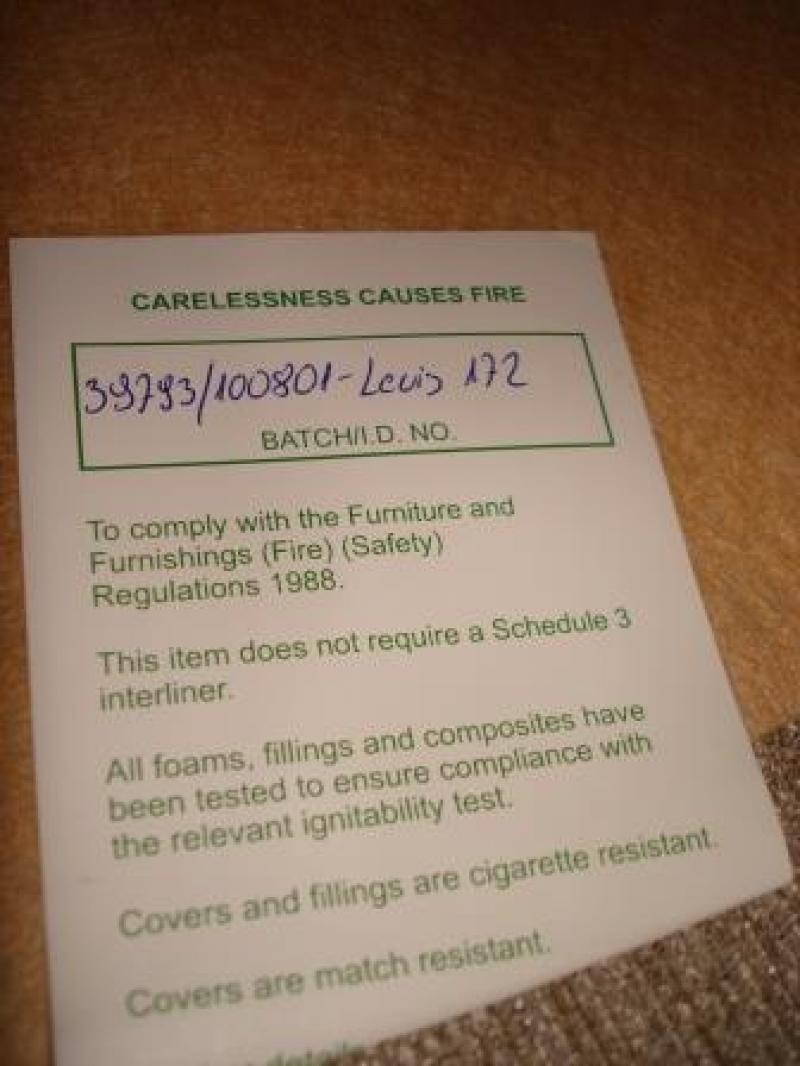 CARELESSNESS CAUSES FIRE
39793/100801-Levis 172
BATCH/I.D. NO.
To comply with the Furniture and
Furnishings (Fire) (Safety)
Regulations 1988.
This item does not require a Schedule 3
interliner.
All foams, fillings and composites have
been tested to ensure compliance with
the relevant ignitability test.
Covers and fillings are cigarette resistant.
Covers are match resistant.
details